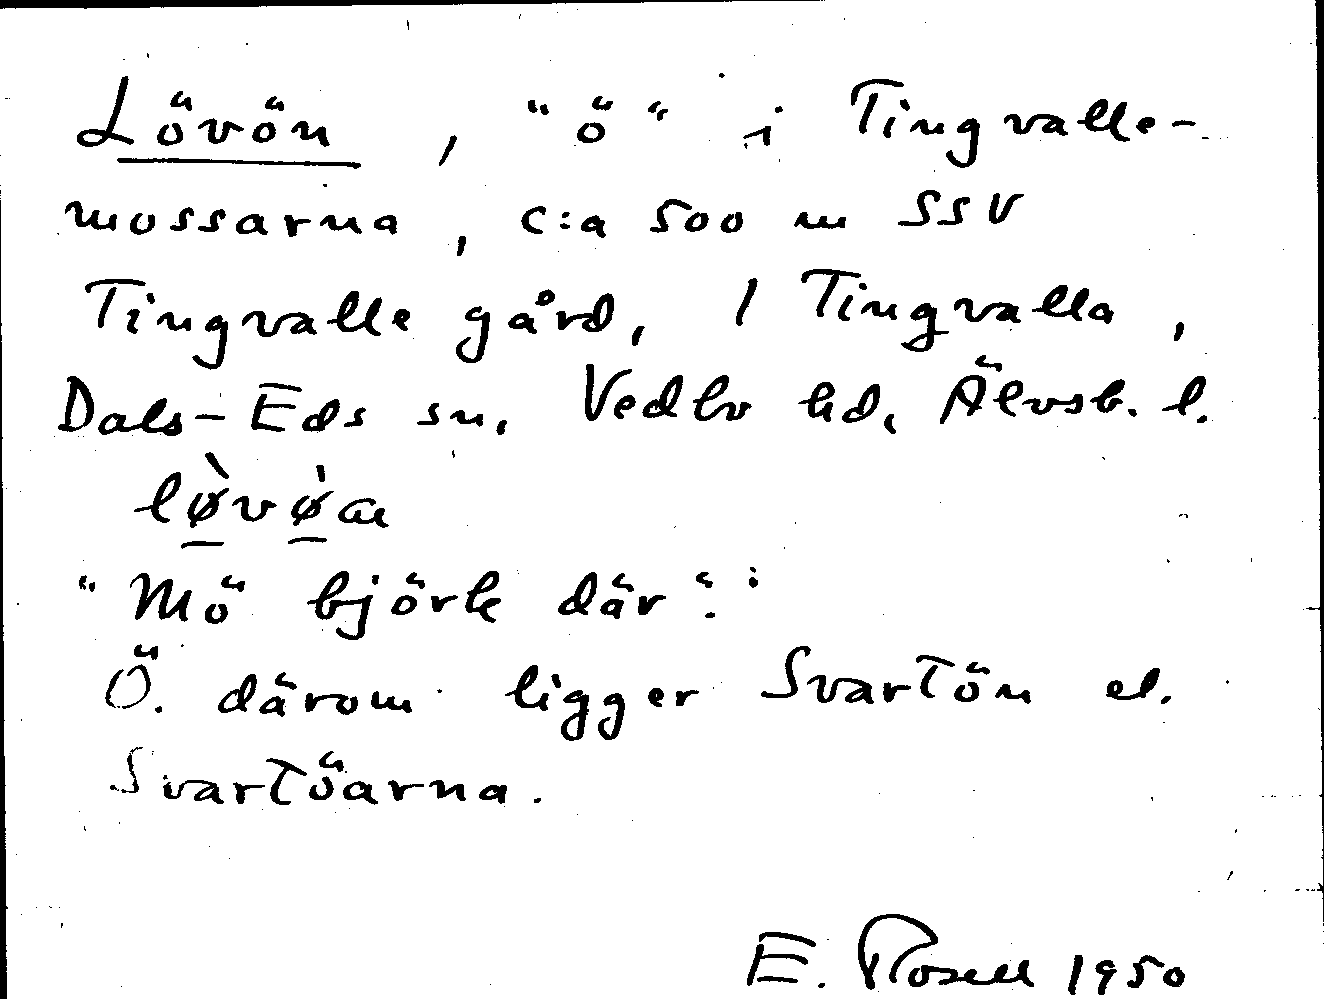 Lövön, "ö" i Tingvalle-
mossarna, c:a 500 m SSV
Tingvalle gård, 1 Tingvalla,
Dals-Eds sn, Vedbo hd, Älvsb. l.
lø̱̀vø̱̀æn
"Mö björk där".
Ö. därom ligger Svartön el.
Svartöarna.
E. Rosell 1950